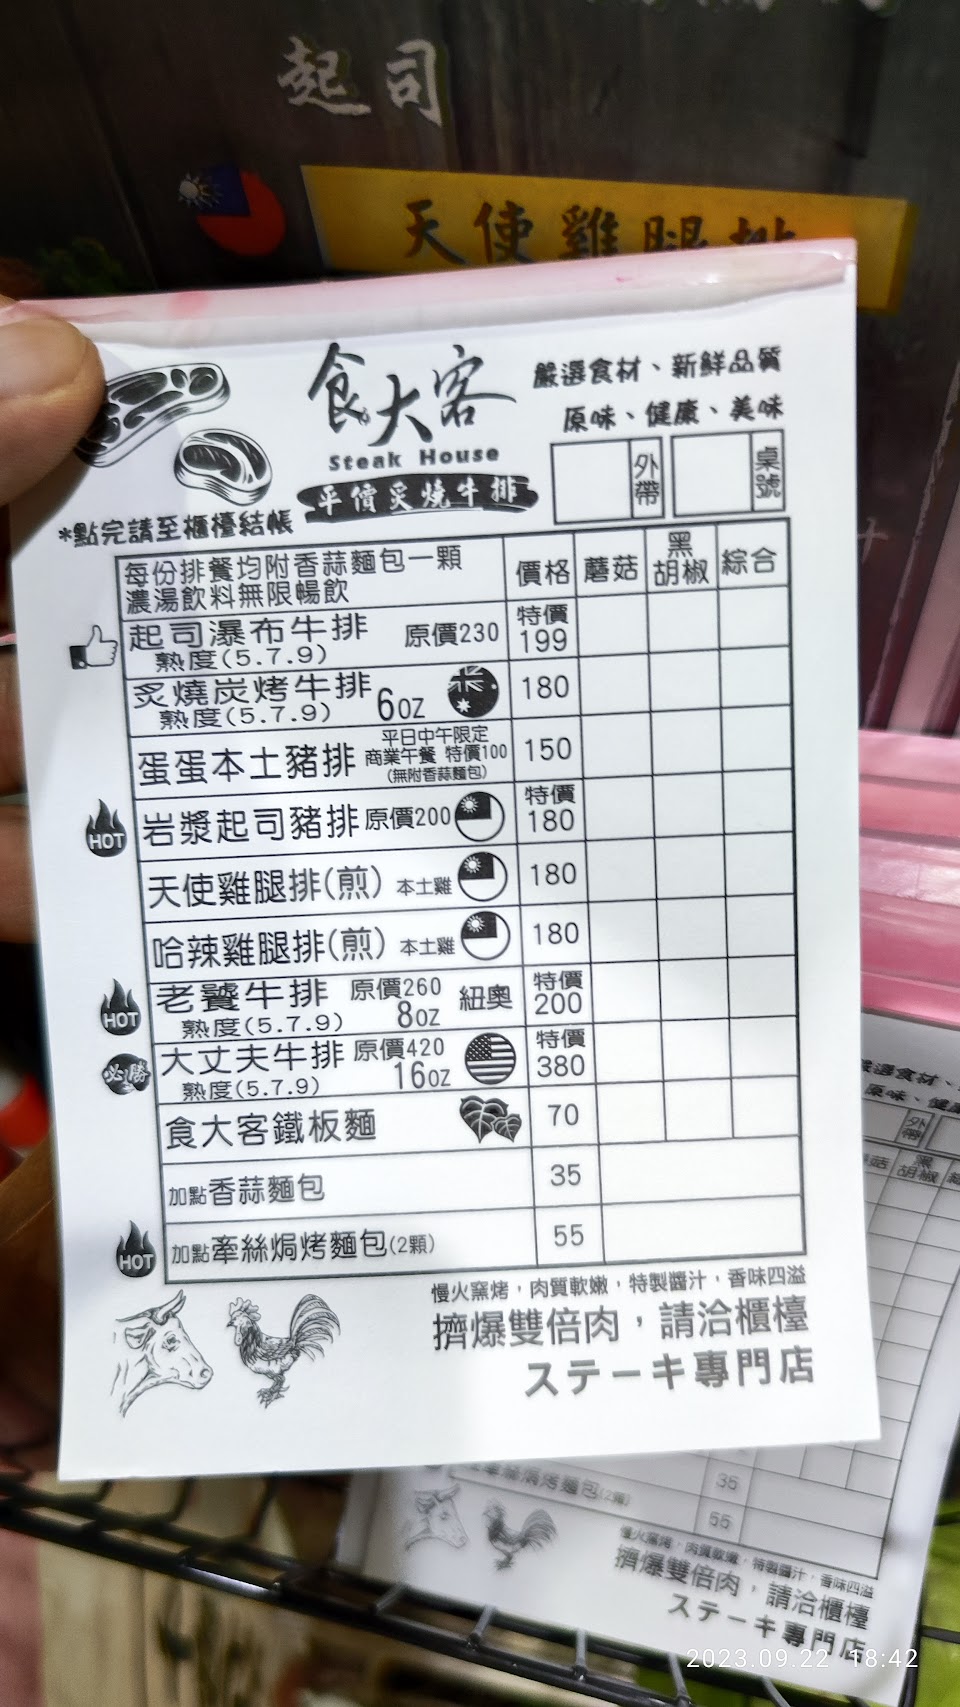 起司
天使雞腿排
食大客
Steak House
平價炙燒牛排
嚴選食材、新鮮品質
原味、健康、美味
外帶
桌號
*點完請至櫃檯結帳
每份排餐均附香蒜麵包一顆
濃湯飲料無限暢飲
價格 蘑菇 黑胡椒 綜合
起司瀑布牛排 原價230 特價199
熟度(5.7.9)
炙燒炭烤牛排 6oz 180
熟度(5.7.9)
蛋蛋本土豬排 平日中午限定 商業午餐 特價100 (無附香蒜麵包) 150
HOT 岩漿起司豬排 原價200 特價180
天使雞腿排(煎) 本土雞 180
哈辣雞腿排(煎) 本土雞 180
HOT 老饕牛排 原價260 8oz 紐奧 特價200
熟度(5.7.9)
必勝 大丈夫牛排 原價420 16oz 特價380
熟度(5.7.9)
食大客鐵板麵 70
加點香蒜麵包 35
HOT 加點牽絲焗烤麵包(2顆) 55
慢火窯烤,肉質軟嫩,特製醬汁,香味四溢
擠爆雙倍肉,請洽櫃檯
ステーキ專門店
嚴選食材、
原味、健康
外帶
菇 黑胡椒 綜
牽絲焗烤麵包(2顆)
35
55
慢火窯烤,肉質軟嫩,特製醬汁,香味四溢
擠爆雙倍肉,請洽櫃檯
ステーキ專門店
2023.09.22 18:42